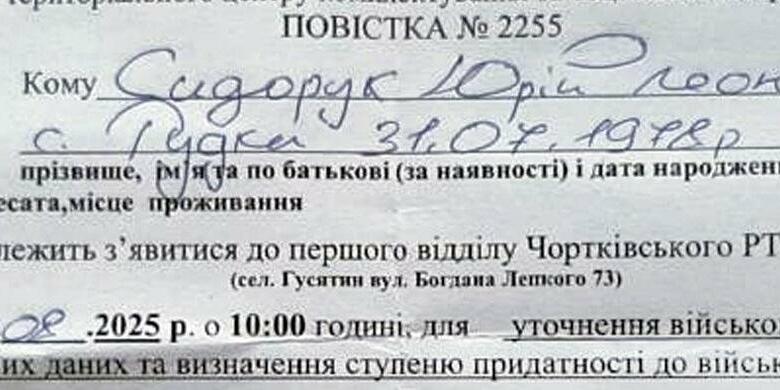 ПОВІСТКА № 2255
Кому Сидорук Юрій Леон
с. Рудка 31.07.1978р
прізвище, ім'я та по батькові (за наявності) і дата народжен
есата,місце проживання
лежить з’явитися до першого відділу Чортківського РТ
(сел. Гусятин вул. Богдана Лепкого 73)
08 .2025 р. о 10:00 годині, для уточнення військо
их даних та визначення ступеню придатності до війсь